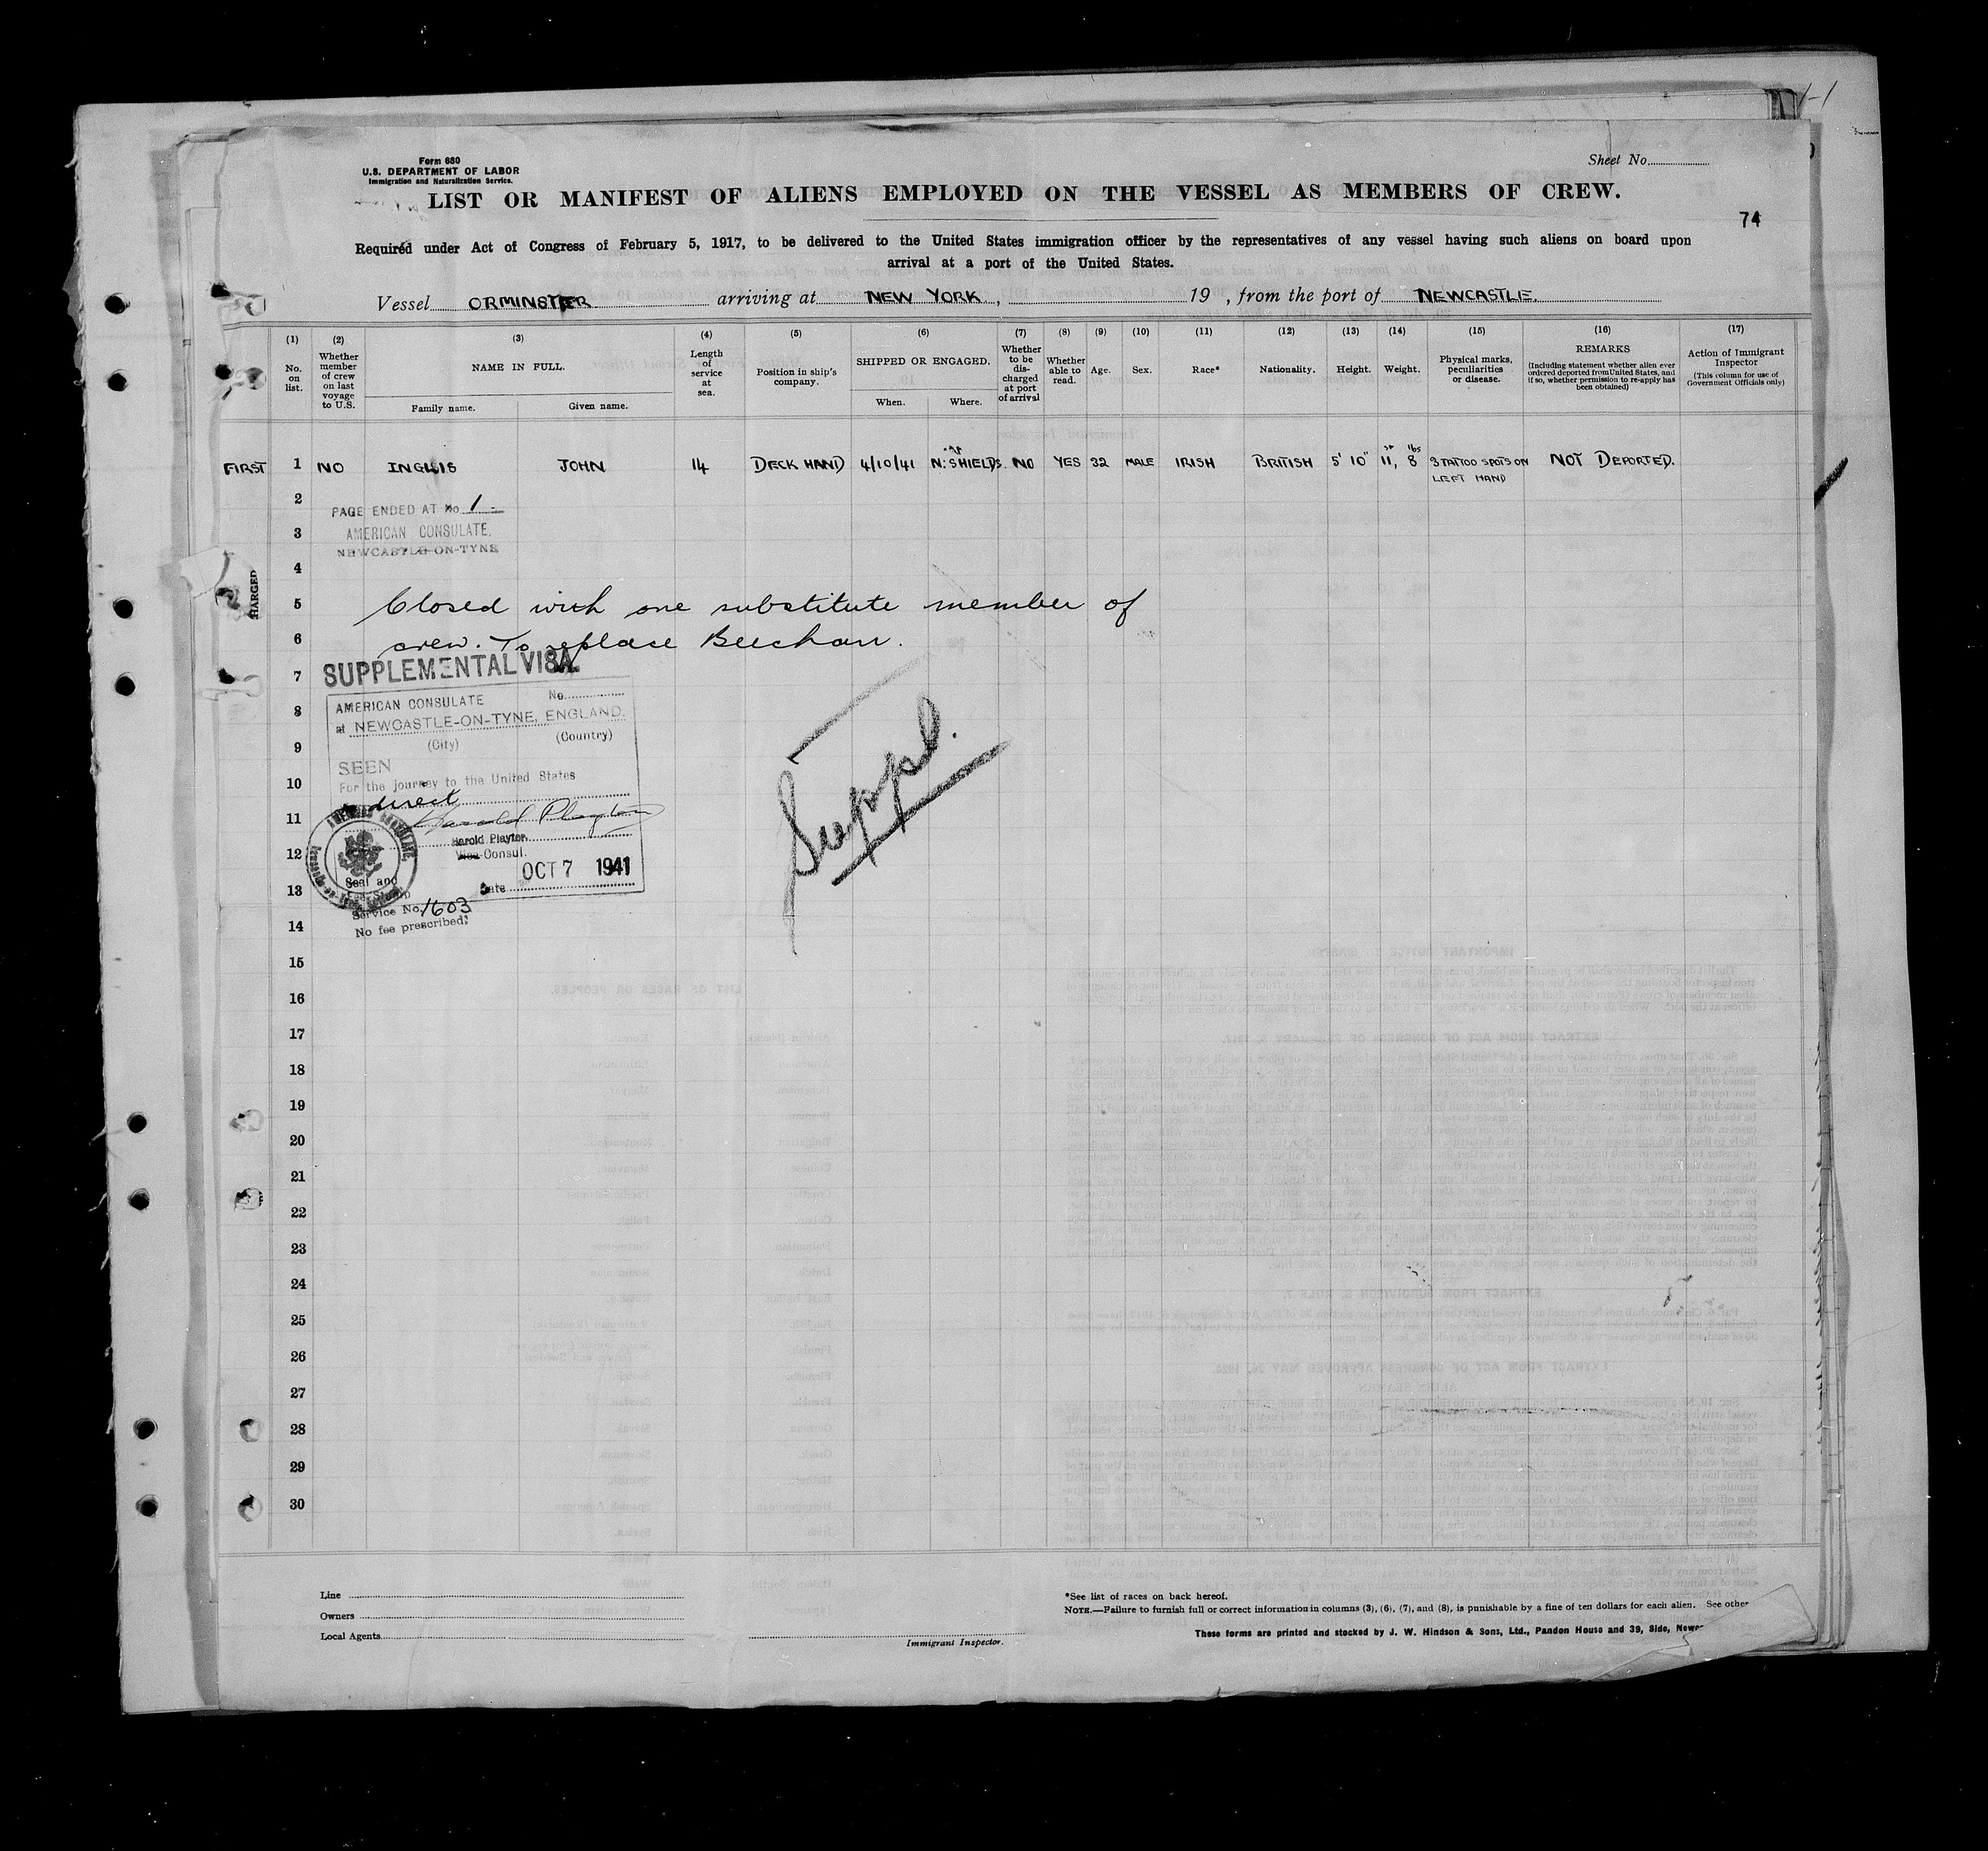 Form 680
U.S. DEPARTMENT OF LABOR
Immigration and Naturalization Service.
Sheet No.
LIST OR MANIFEST OF ALIENS EMPLOYED ON THE VESSEL AS MEMBERS OF CREW.
74
Required under Act of Congress of February 5, 1917, to be delivered to the United States immigration officer by the representatives of any vessel having such aliens on board upon
arrival at a port of the United States.
Vessel ORMINSTER arriving at NEW YORK, 19 , from the port of NEWCASTLE.
(1) (2) (3) (4) (5) (6) (7) (8) (9) (10) (11) (12) (13) (14) (15) (16) (17)
No. on list.
Whether member of crew on last voyage to U.S.
NAME IN FULL.
Family name. Given name.
Length of service at sea.
Position in ship's company.
SHIPPED OR ENGAGED.
When. Where.
Whether to be discharged at port of arrival
Whether able to read.
Age.
Sex.
Race*
Nationality.
Height.
Weight.
Physical marks, peculiarities or disease.
REMARKS
(Including statement whether alien ever ordered deported from United States, and if so, whether permission to re-apply has been obtained)
Action of Immigrant Inspector
(This column for use of Government Officials only)
FIRST 1 NO INGLIS JOHN 14 DECK HAND 4/10/41 N. SHIELDS. NO YES 32 MALE IRISH BRITISH 5' 10" 11, 8 lbs 3 TATTOO SPOTS ON NOT DEPORTED.
LEFT HAND
2
PAGE ENDED AT No 1 -
3
AMERICAN CONSULATE,
NEWCASTLE-ON-TYNE
4
HARGED
5
Closed with one substitute member of
6
crew. To replace Beechan.
7
SUPPLEMENTAL VISA
AMERICAN CONSULATE No.
8
at NEWCASTLE-ON-TYNE, ENGLAND.
9
(City) (Country)
SEEN
10
For the journey to the United States
direct
11
Harold Playter
Harold Playter
12
Vice Consul.
Date OCT 7 1941
13
Seal and
Service No. 1603
14
No fee prescribed.
Suppl.
15
16
17
18
19
20
21
22
23
24
25
26
27
28
29
30
Line
Owners
Local Agents
Immigrant Inspector.
*See list of races on back hereof.
NOTE.—Failure to furnish full or correct information in columns (3), (6), (7), and (8), is punishable by a fine of ten dollars for each alien. See other
These forms are printed and stocked by J. W. Hindson & Sons, Ltd., Pandon House and 39, Side,